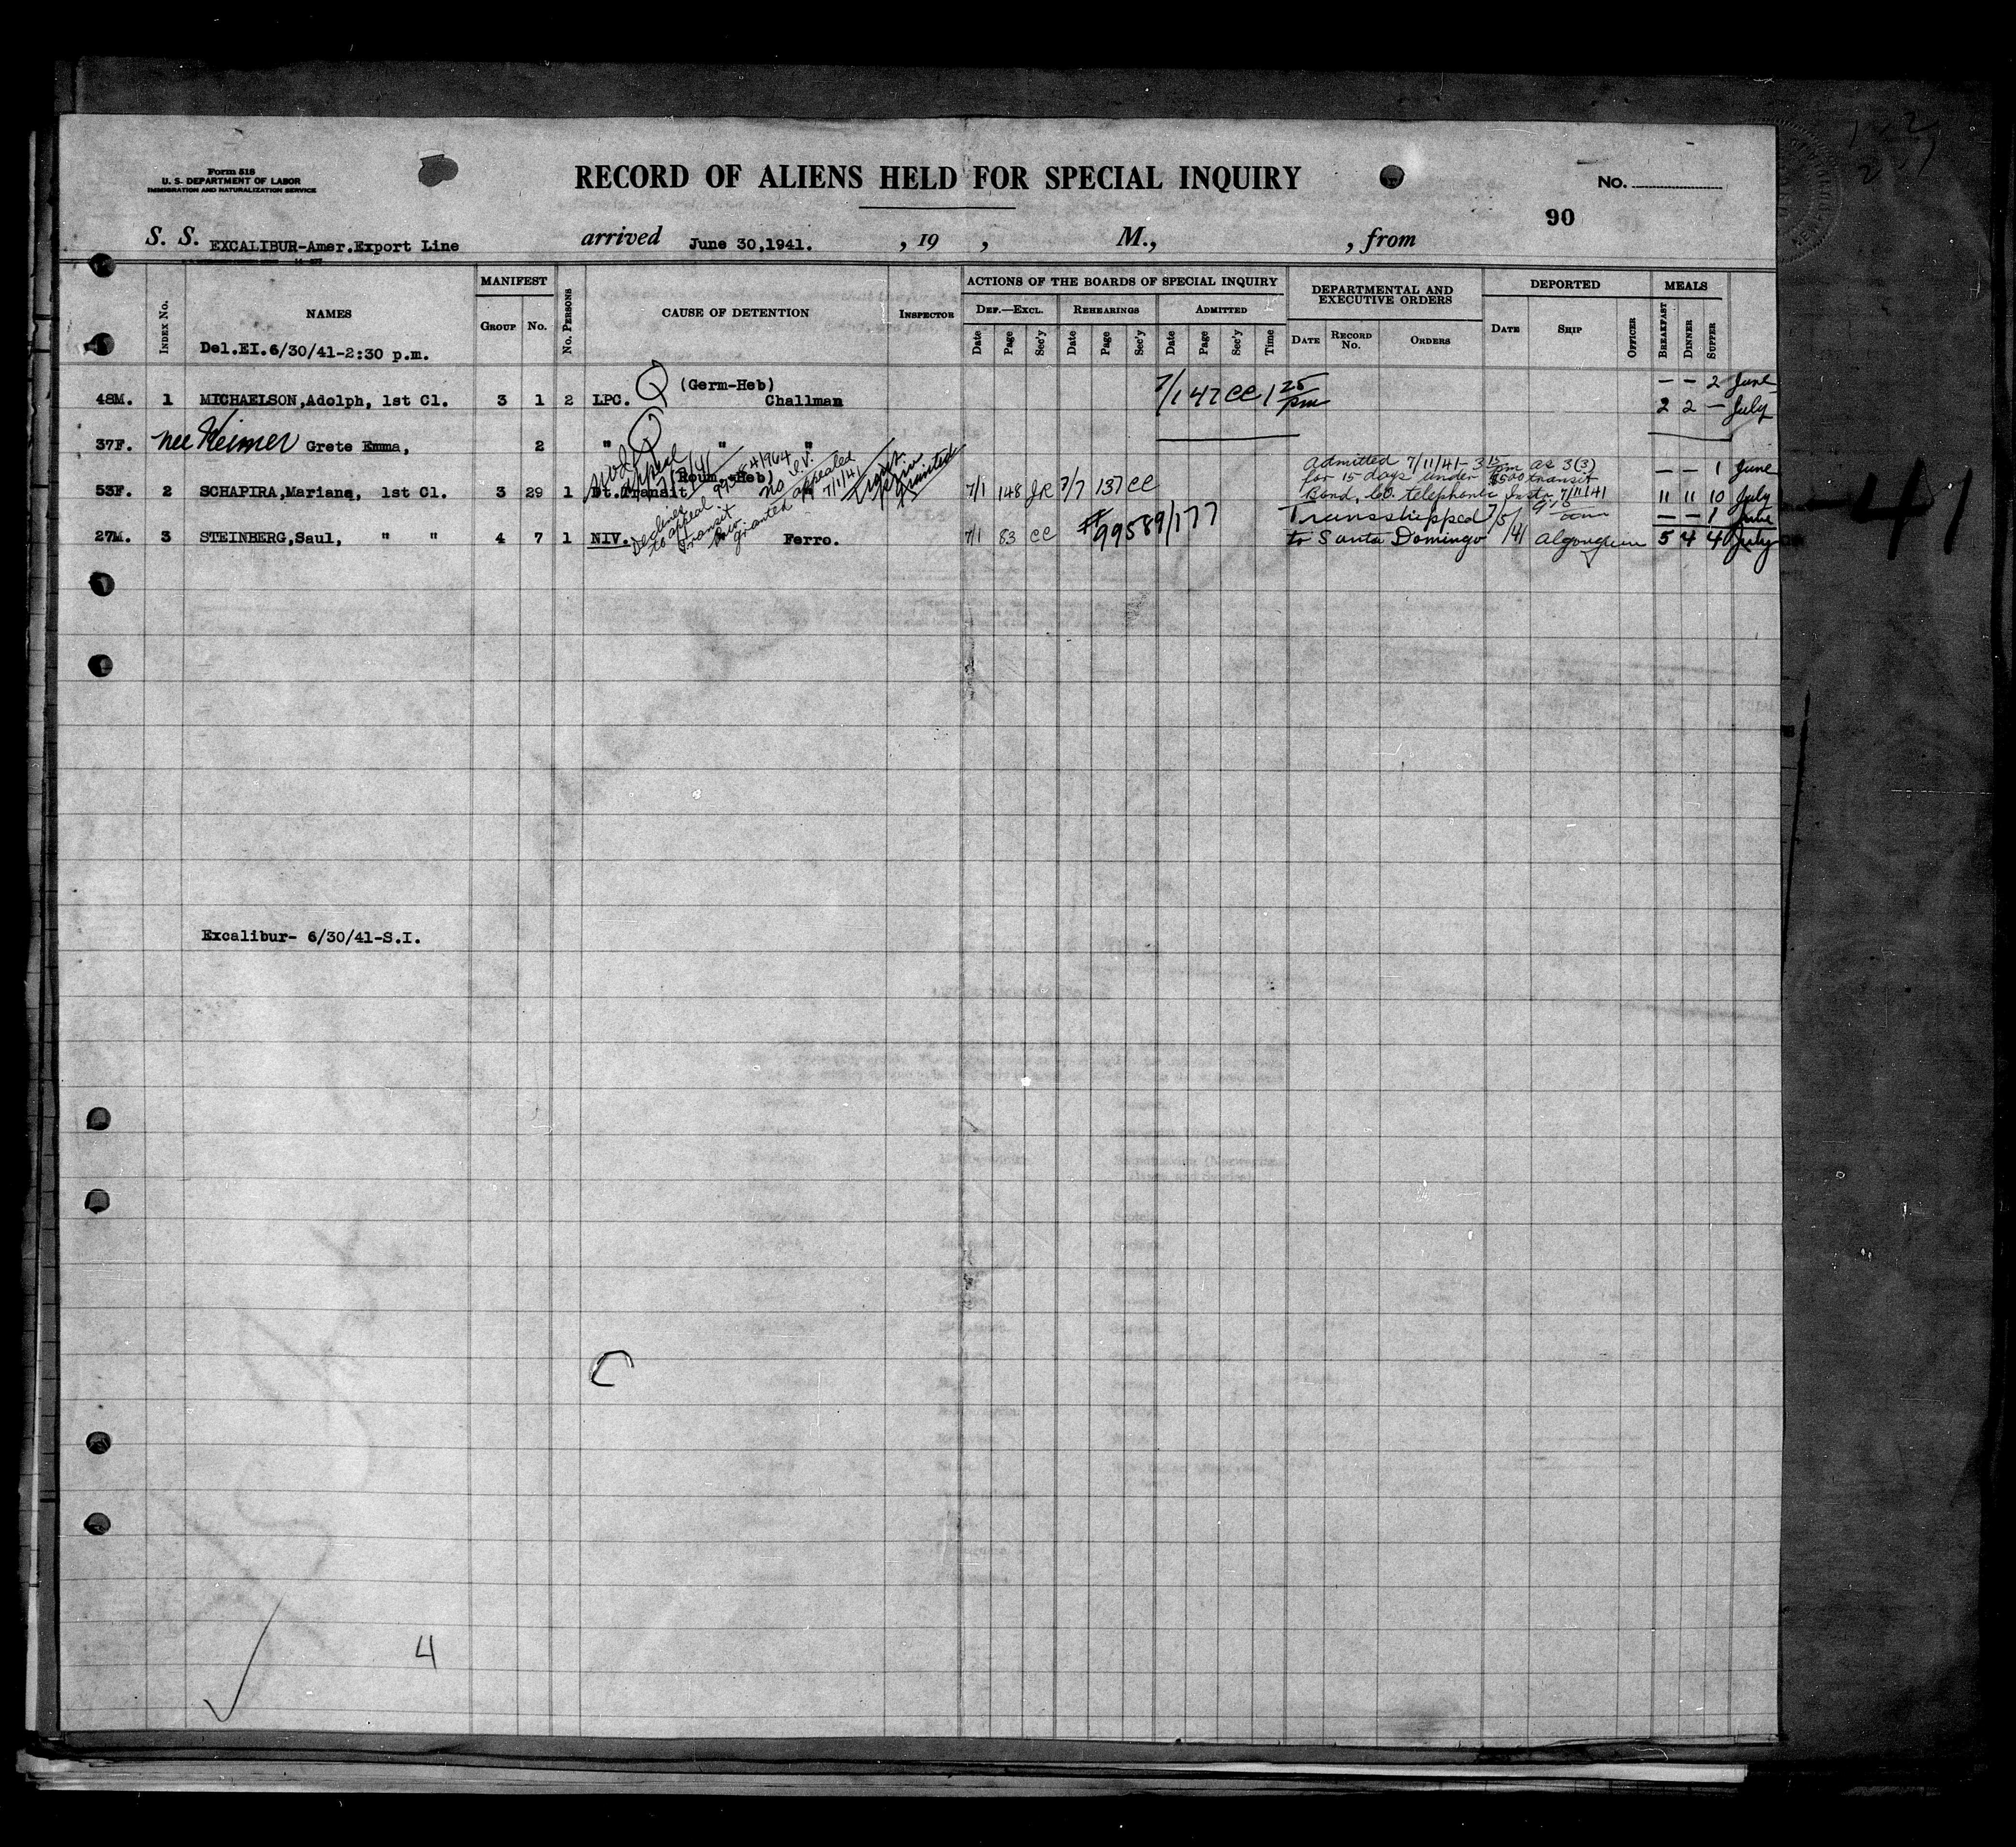 Form 518
U. S. DEPARTMENT OF LABOR
IMMIGRATION AND NATURALIZATION SERVICE
RECORD OF ALIENS HELD FOR SPECIAL INQUIRY
No.
90
S. S. EXCALIBUR-Amer.Export Line arrived June 30,1941. , 19 , M., , from
INDEX No. NAMES MANIFEST GROUP No. No. PERSONS CAUSE OF DETENTION INSPECTOR ACTIONS OF THE BOARDS OF SPECIAL INQUIRY DEPARTMENTAL AND EXECUTIVE ORDERS DEPORTED MEALS
DEF.—EXCL. REHEARINGS ADMITTED
Date Page Sec'y Date Page Sec'y Date Page Sec'y Time DATE RECORD No. ORDERS DATE SHIP OFFICER BREAKFAST DINNER SUPPER
Del.EI.6/30/41-2:30 p.m.
Q (Germ-Heb) — — 2 June
48M. 1 MICHAELSON,Adolph, 1st Cl. 3 1 2 LPC. Challman 7/1 47 CC 1 25 pm 2 2 — July
37F. nee Keimer Grete Emma, 2 " Q " "
appeal 7/7/41 (Roum-Heb) no I.V. appealed 7/11/41 Trans. priv. granted
Admitted 7/11/41- 3 15 pm as 3(3) — — 1 June
for 15 days under $500 transit
53F. 2 SCHAPIRA,Mariana, 1st Cl. 3 29 1 Dt.Transit 7/1 148 JR 7/7 137 CC Bond, C.O. telephone Instr 7/11/41 11 11 10 July
Declines to appeal Transit priv. granted #99589/177 Transshipped 7/5/41 9 10 am — — 1 June
27M. 3 STEINBERG,Saul, " " 4 7 1 NIV. Ferro. 7/1 83 CC to Santa Domingo Algonquin 5 4 4 July
41
Excalibur- 6/30/41-S.I.
C
4